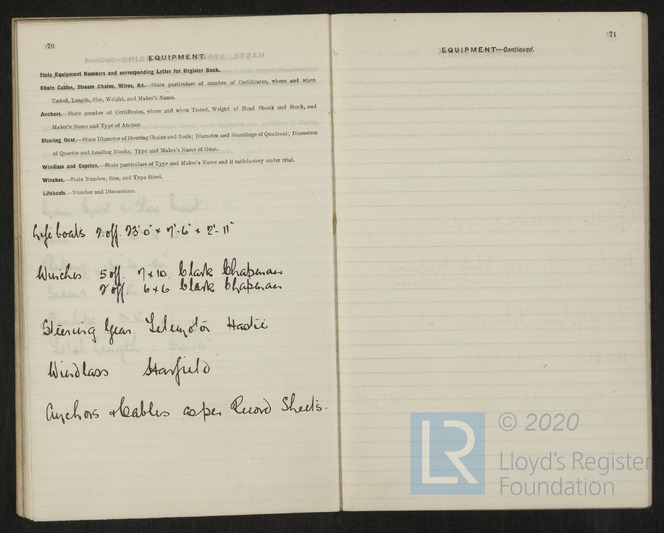 70
EQUIPMENT.
State Equipment Numbers and corresponding Letter for Register Book.
Chain Cables, Stream Chains, Wires, &c.—State particulars of number of Certificates, where and when
Tested, Length, Size, Weight, and Maker's Name.
Anchors.—State number of Certificates, where and when Tested, Weight of Head Shank and Stock, and
Maker's Name and Type of Anchor.
Steering Gear.—State Diameter of Steering Chains and Rods; Diameter and Scantlings of Quadrant; Diameters
of Quarter and Leading Blocks; Type and Maker's Name of Gear.
Windlass and Capstan.—State particulars of Type and Maker's Name and if satisfactory under trial.
Winches.—State Number, Size, and Type fitted.
Lifeboats.—Number and Dimensions.
Lifeboats 2 off. 23'-0" x 7'-6" x 2'-11"
Winches 5 off. 7 x 10. Clark Chapman
2 off 6 x 6 Clark Chapman
Steering Gear. Telemotor Hastie
Windlass Starfield
Anchors & Cables as per Record Sheets.
71
EQUIPMENT—Continued.
LR
© 2020
Lloyd's Register
Foundation